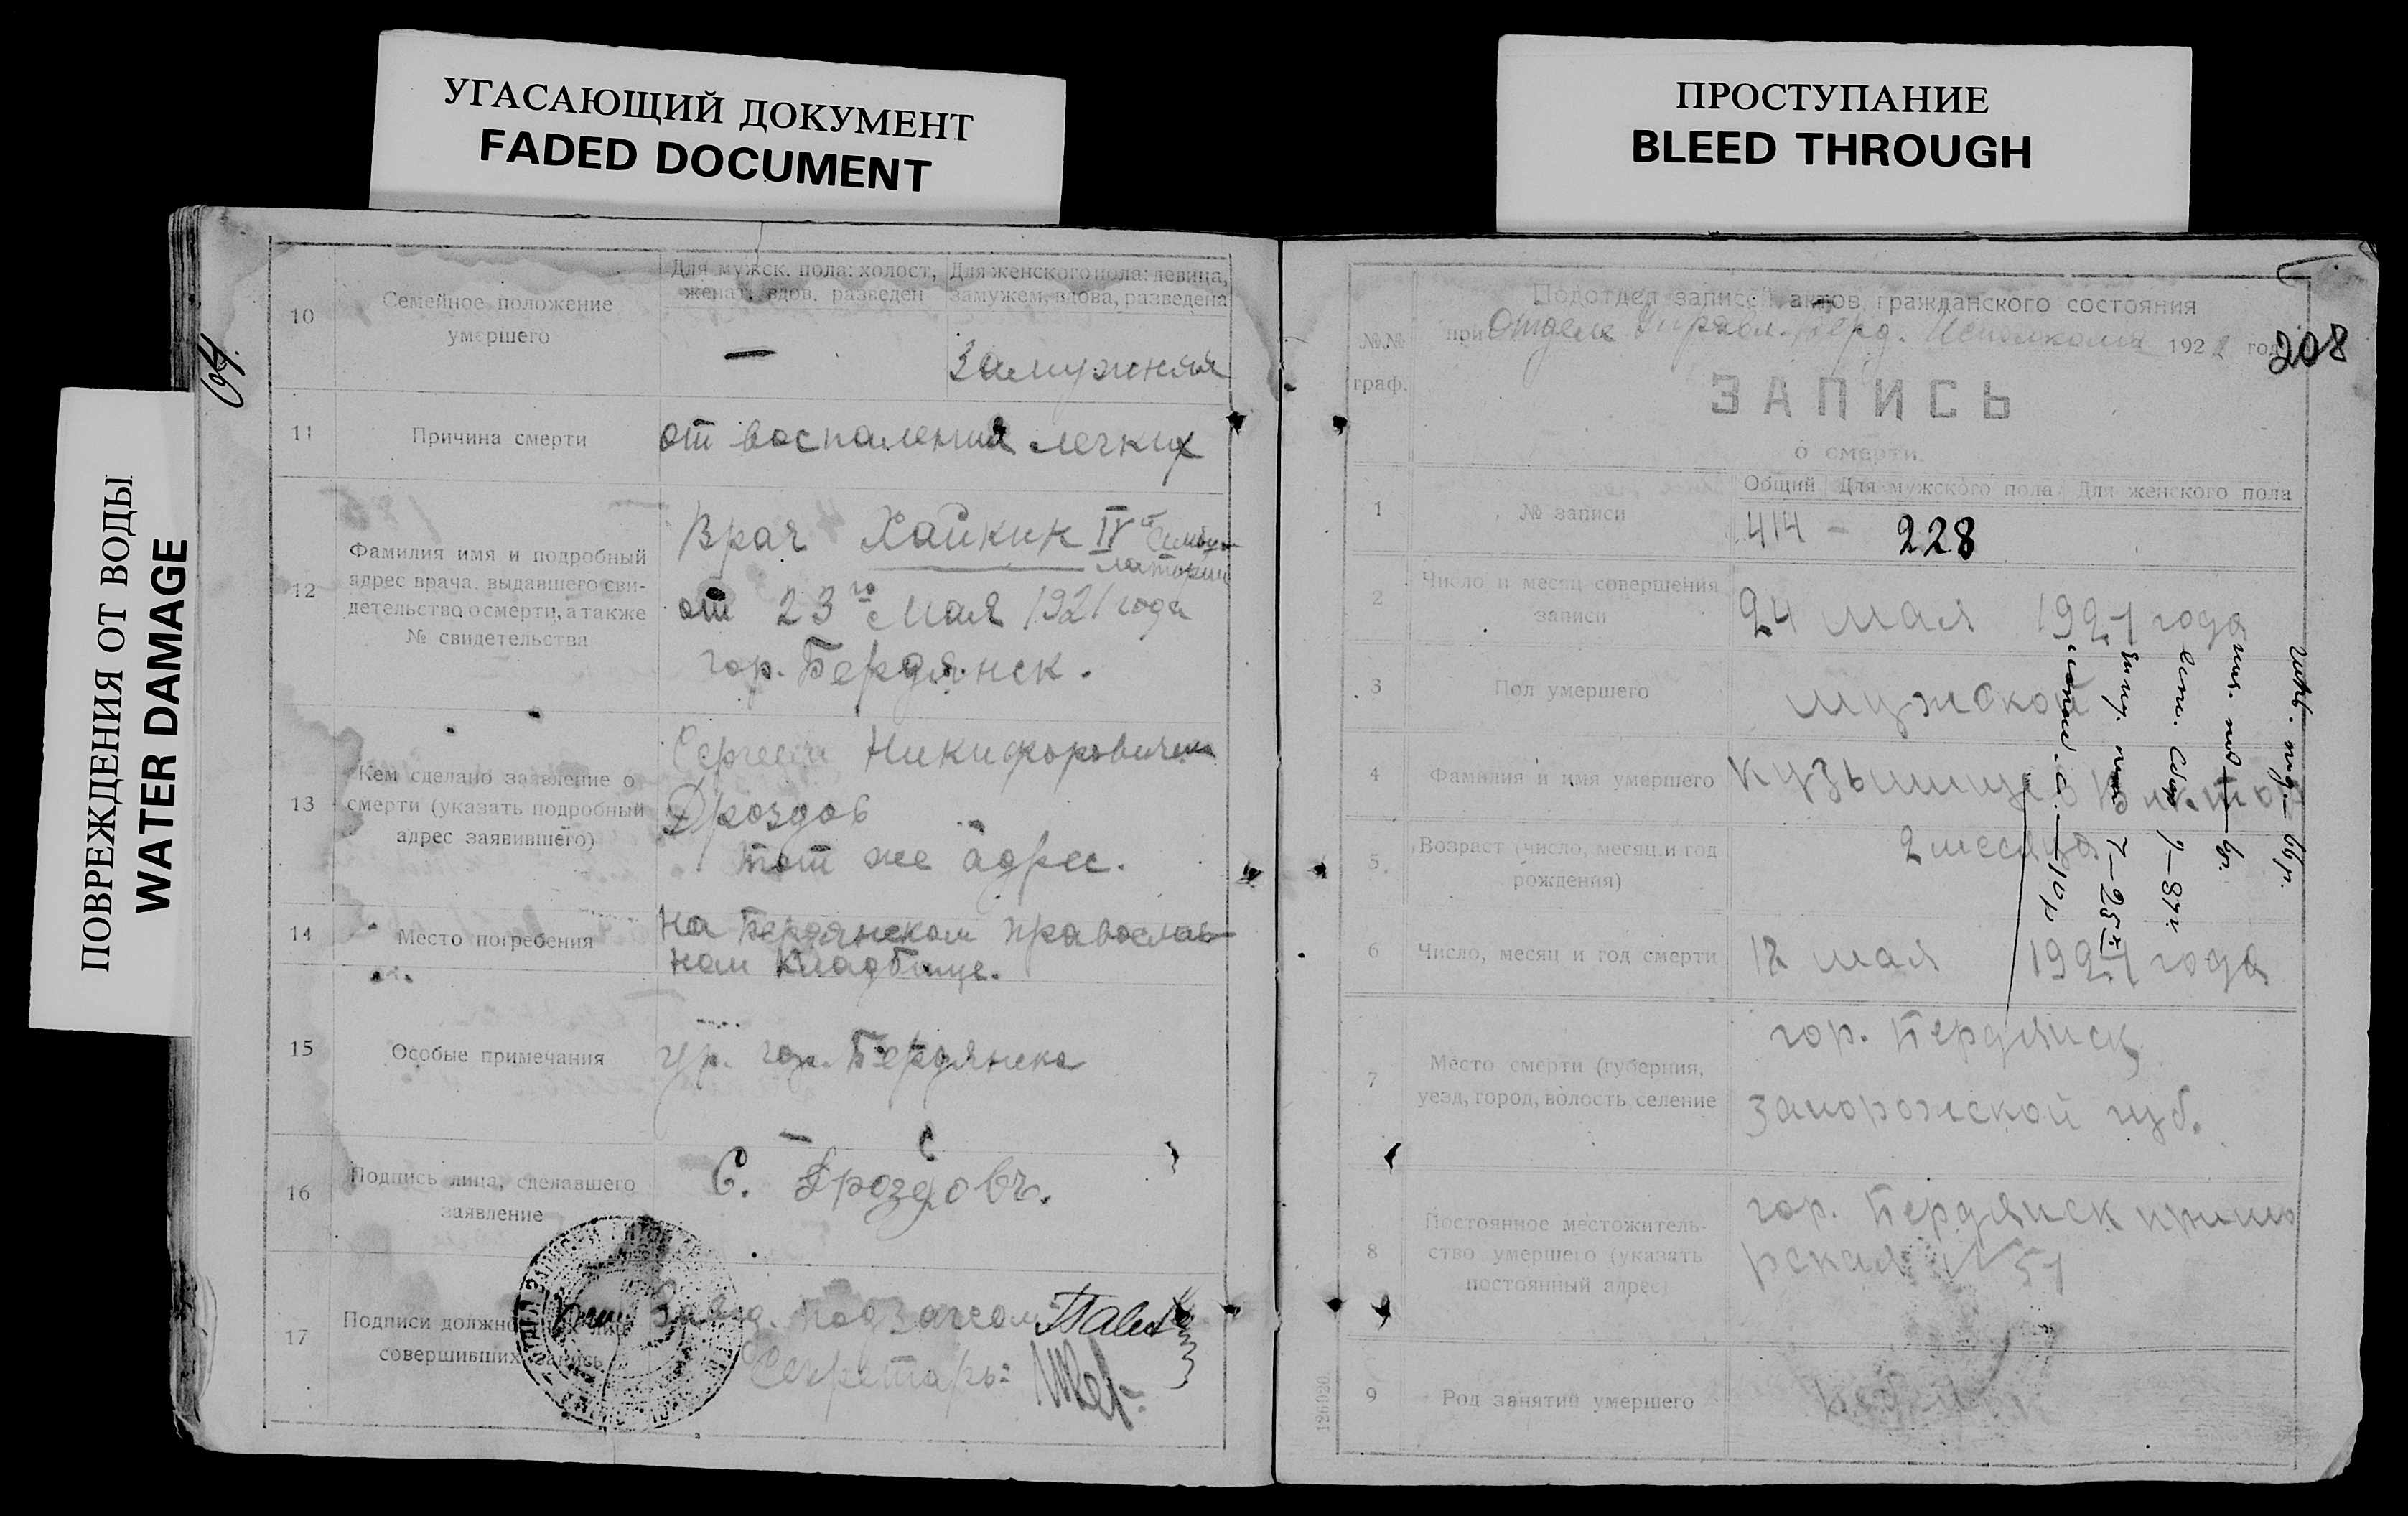 УГАСАЮЩИЙ ДОКУМЕНТ
FADED DOCUMENT
ПРОСТУПАНИЕ
BLEED THROUGH
ПОВРЕЖДЕНИЯ ОТ ВОДЫ
WATER DAMAGE
10
Семейное положение
умершего
Для мужск. пола: холост,
женат, вдов, разведен
Для женского пола: девица,
замужем, вдова, разведена
—
Замужняя
11
Причина смерти
от воспаления легких
12
Фамилия имя и подробный
адрес врача, выдавшего сви-
детельство о смерти, а также
№ свидетельства
Врач Хайкин IV
от 23го мая 1921 года
гор. Бердянск.
13
Кем сделано заявление о
смерти (указать подробный
адрес заявившего)
Сергеем Никифоровичем
Дроздов
тот же адрес.
14
Место погребения
на Бердянском православ-
ном кладбище.
15
Особые примечания
гр. гор. Бердянска
16
Подпись лица, сделавшего
заявление
С. Дроздовъ.
17
Подписи должностных лиц
совершивших запись
Завед. подзагсом
Секретарь:
Подотдел записей актов гражданского состояния
№№
граф.
при Отделе Управл. Берд. Исполкома 1922 год
208
ЗАПИСЬ
о смерти.
1
№ записи
Общий Для мужского пола Для женского пола
414 — 228
2
Число и месяц совершения
записи
24 мая 1921 года
3
Пол умершего
мужской
4
Фамилия и имя умершего
5
Возраст (число, месяц и год
рождения)
2 месяца
6
Число, месяц и год смерти
12 мая 1921 года
7
Место смерти (губерния,
уезд, город, волость селение
гор. Бердянск
Запорожской губ.
8
Постоянное местожитель-
ство умершего (указать
постоянный адрес)
гор. Бердянск примо
рская № 51
9
Род занятий умершего